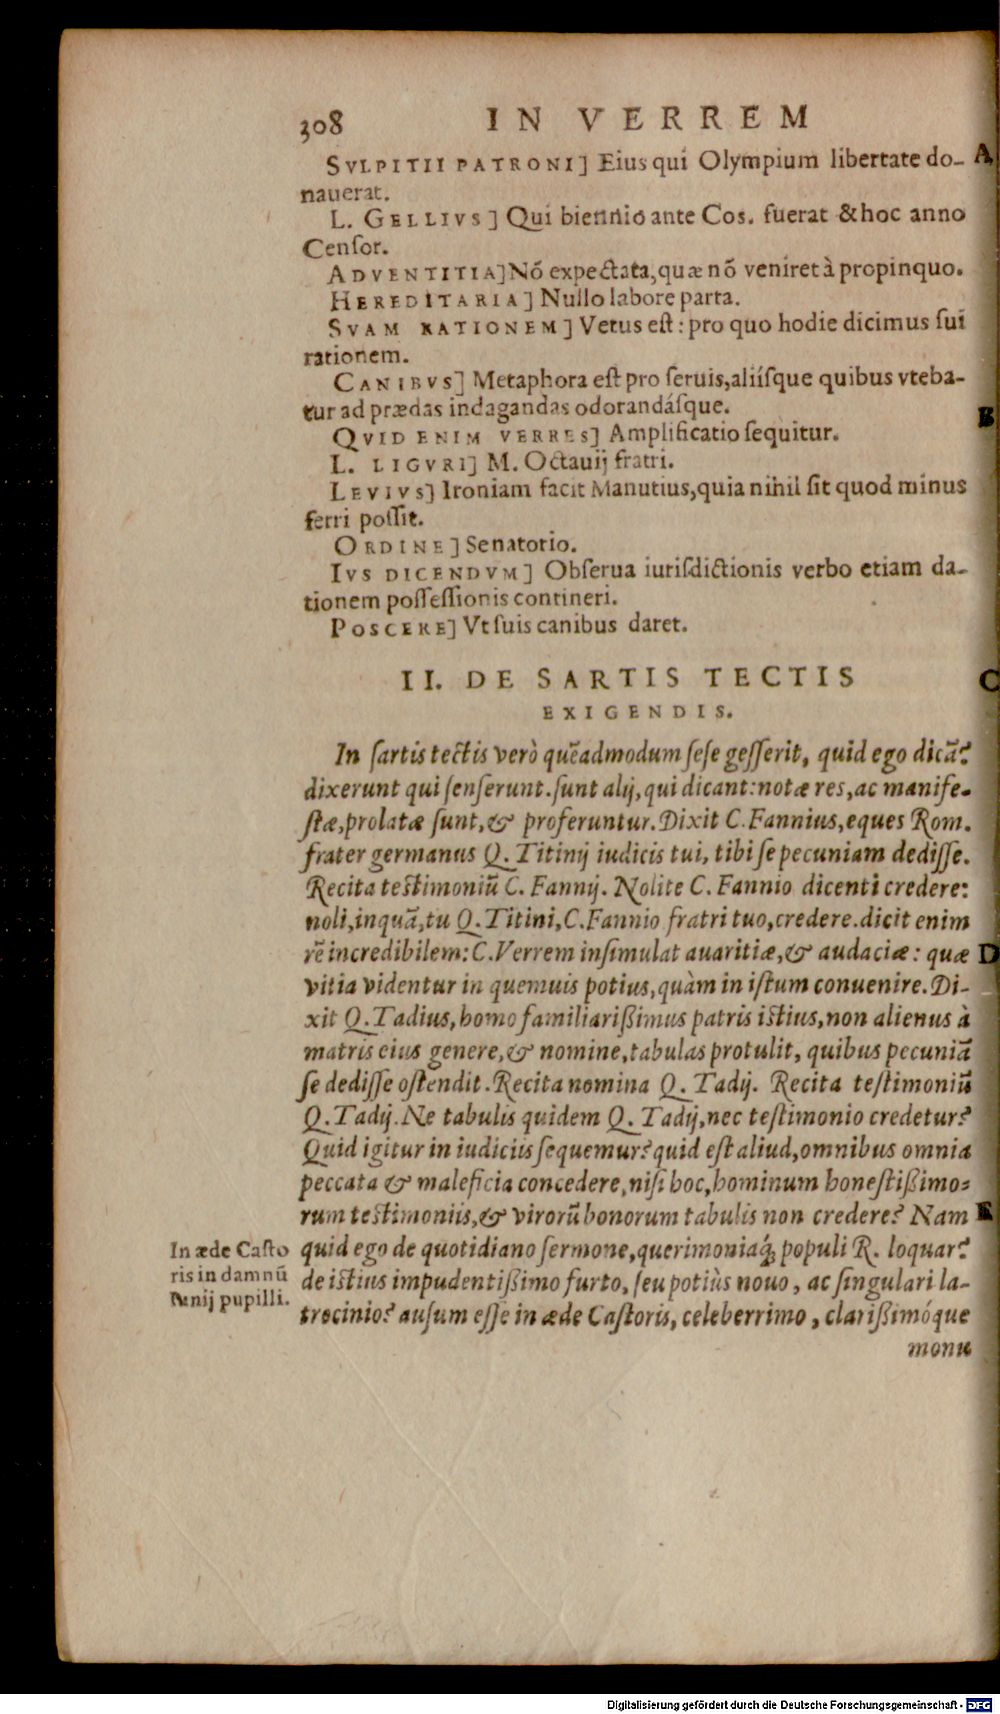 308 IN VERREM
SVLPITII PATRONI] Eius qui Olympium libertate do- A
nauerat.
L. GELLIVS] Qui biennio ante Cos. fuerat & hoc anno
Cenſor.
ADVENTITIA] Nō expectata, quæ nō veniret à propinquo.
HEREDITARIA] Nullo labore parta.
SVAM RATIONEM] Vetus eſt: pro quo hodie dicimus ſui
rationem.
CANIBVS] Metaphora eſt pro ſeruis, aliíſque quibus vteba-
tur ad prædas indagandas odorandáſque. B
QVID ENIM VERRES] Amplificatio ſequitur.
L. LIGVRI] M. Octauij fratri.
LEVIVS] Ironiam facit Manutius, quia nihil ſit quod minus
ferri poſſit.
ORDINE] Senatorio.
IVS DICENDVM] Obſerua iuriſdictionis verbo etiam da-
tionem poſſeſſionis contineri.
POSCERE] Vt ſuis canibus daret.
II. DE SARTIS TECTIS C
EXIGENDIS.
In ſartis tectis verò quēadmodum ſeſe geſſerit, quid ego dicā?
dixerunt qui ſenſerunt. ſunt alij, qui dicant: notæ res, ac manife-
ſtæ, prolatæ ſunt, & proferuntur. Dixit C. Fannius, eques Rom.
frater germanus Q. Titinij iudicis tui, tibi ſe pecuniam dediſſe.
Recita teſtimoniū C. Fannij. Nolite C. Fannio dicenti credere:
noli, inquā, tu Q. Titini, C. Fannio fratri tuo, credere. dicit enim
rē incredibilem: C. Verrem inſimulat auaritiæ, & audaciæ: quæ D
vitia videntur in quemuis potius, quàm in iſtum conuenire. Di-
xit Q. Tadius, homo familiarißimus patris iſtius, non alienus à
matris eius genere, & nomine, tabulas protulit, quibus pecuniā
ſe dediſſe oſtendit. Recita nomina Q. Tadij. Recita teſtimoniū
Q. Tadij. Ne tabulis quidem Q. Tadij, nec teſtimonio credetur?
Quid igitur in iudiciis ſequemur? quid eſt aliud, omnibus omnia
peccata & maleficia concedere, niſi hoc, hominum honeſtißimo-
rum teſtimoniis, & virorū bonorum tabulis non credere? Nam E
quid ego de quotidiano ſermone, querimoniaq́; populi R. loquar?
de iſtius impudentißimo furto, ſeu potiùs nouo, ac ſingulari la-
trocinio? auſum eſſe in æde Caſtoris, celeberrimo, clarißimóque
monu
In æde Caſto
ris in damnū
Iunij pupilli.
Digitalisierung gefördert durch die Deutsche Forschungsgemeinschaft - DFG